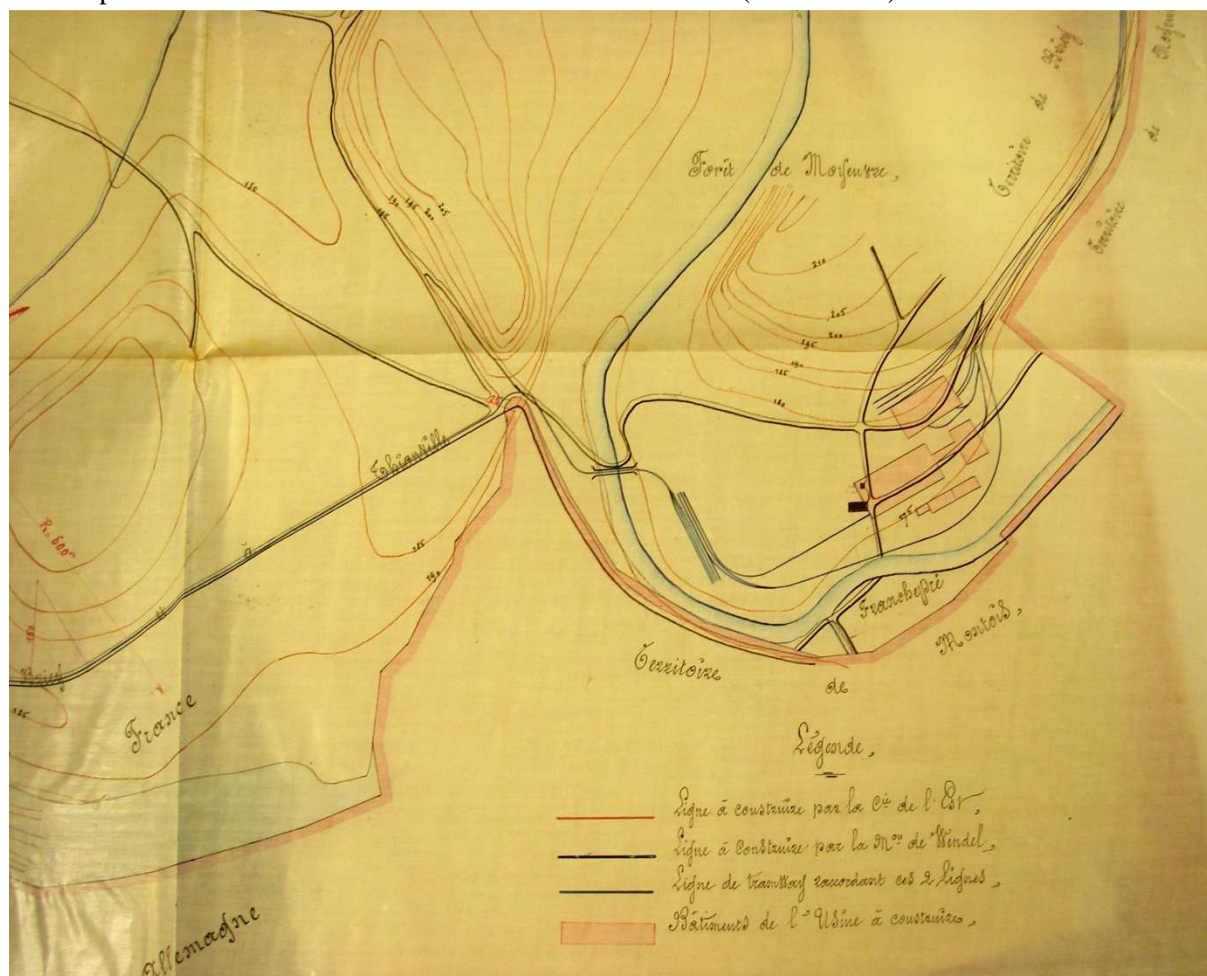 Forêt de Moyeuvre,
Territoire de Briey
Territoire de
150
185
190
195
200
205
210
205
200
195
190
185
180
175
Thionville
à
R. 600m
150
185
190
Briey
185
France
Allemagne
Franchepré
Territoire de Montois,
Légende,
Ligne à construire par la Cie de l'Est,
Ligne à Construire par la Mon de Wendel,
Ligne de tramway raccordant ces 2 lignes,
Bâtiments de l'Usine à construire,